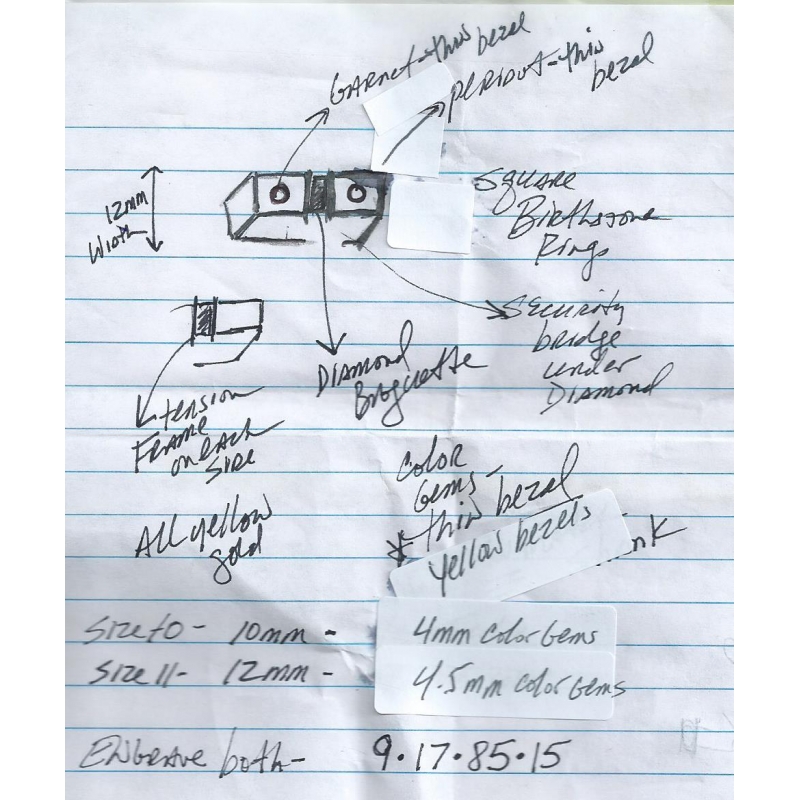 GARNET-thin bezel
PERIDOT-thin
bezel
12mm
Width
Square
Birthstone
Rings
Security
bridge
under
Diamond
Diamond
Baguette
tension
Frame
on each
side
Color
Gems-
thin bezal
Yellow bezels
All yellow
gold
Size 10- 10mm - 4mm Color Gems
Size 11- 12mm - 4.5mm color Gems
Engrave both- 9.17.85.15